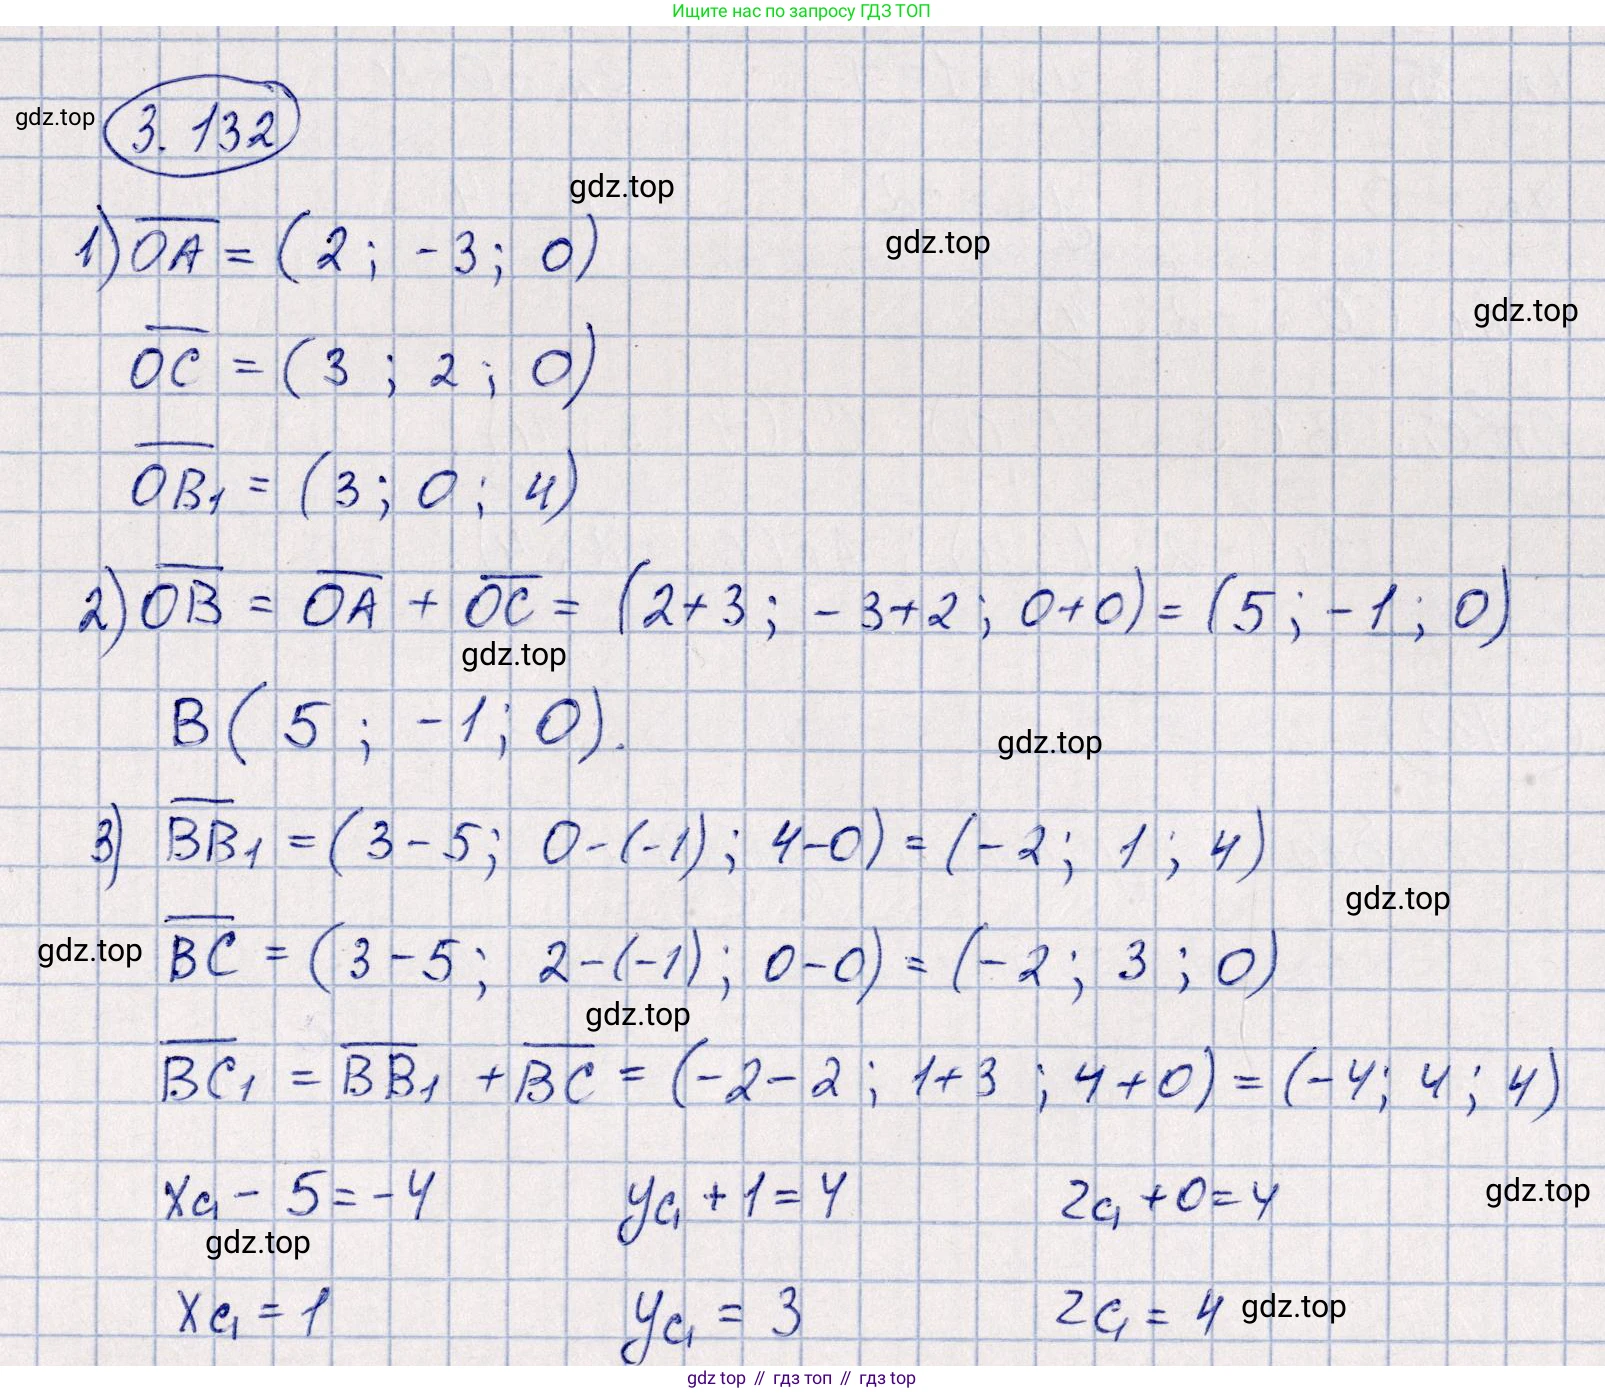 Ищите нас по запросу ГДЗ ТОП
gdz.top
3.132
gdz.top
1) OA = (2; -3; 0)
gdz.top
gdz.top
OC = (3; 2; 0)
OB₁ = (3; 0; 4)
2) OB = OA + OC = (2+3; -3+2; 0+0) = (5; -1; 0)
gdz.top
B(5; -1; 0).
gdz.top
3) BB₁ = (3-5; 0-(-1); 4-0) = (-2; 1; 4)
gdz.top
gdz.top
BC = (3-5; 2-(-1); 0-0) = (-2; 3; 0)
gdz.top
BC₁ = BB₁ + BC = (-2-2; 1+3; 4+0) = (-4; 4; 4)
xc₁ - 5 = -4 yc₁ + 1 = 4 zc₁ + 0 = 4
gdz.top
gdz.top
xc₁ = 1 yc₁ = 3 zc₁ = 4
gdz.top
gdz top // гдз топ // гдз top